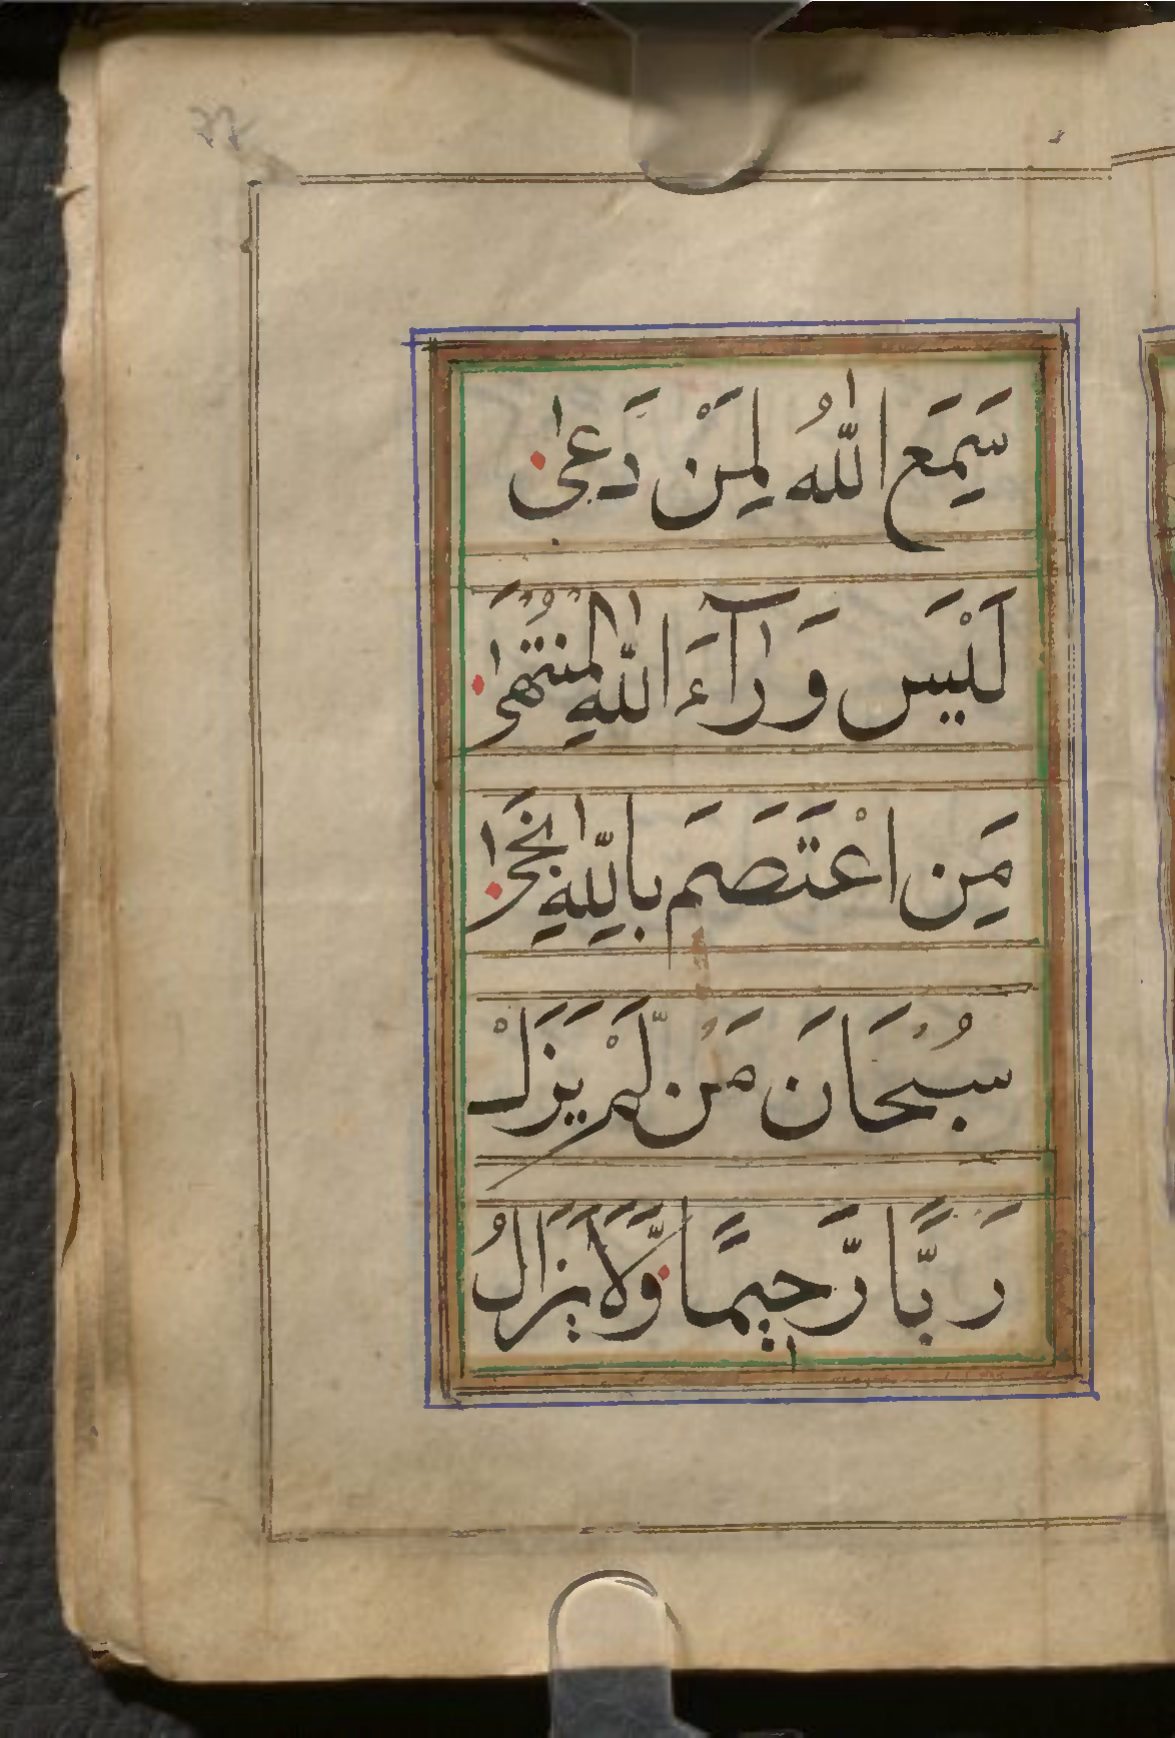 سَمِعَ اللّٰهُ لِمَنْ دَعٰى
لَيْسَ وَرَآءَ اللّٰهِ الْمُنْتَهٰى
مَنِ اعْتَصَمَ بِاللّٰهِ نَجٰى
سُبْحَانَ مَنْ لَّمْ يَزَلْ
رَبًّا رَّحِيْمًا وَّلَا يَزَالُ